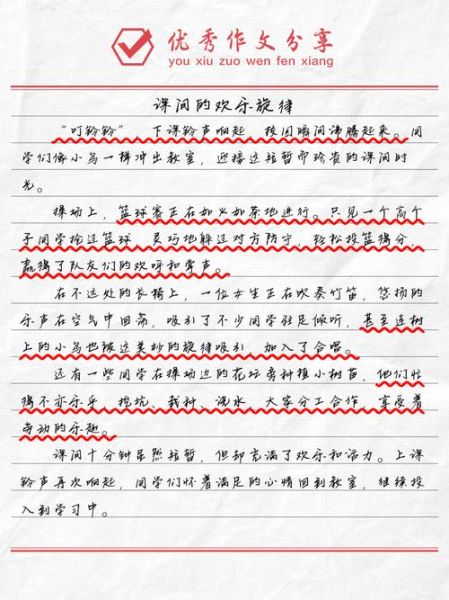 优秀作文分享
you xiu zuo wen fen xiang
课间的欢乐旋律
“叮铃铃”，下课铃声响起，校园瞬间沸腾起来。同
学们像小鸟一样冲出教室，迎接这短暂而珍贵的课间时
光。
操场上，篮球赛正在如火如荼地进行。只见一个高个
子同学抢过篮球，灵巧地躲过对方防守，轻松投篮得分，
赢得了队友们的欢呼和掌声。
在不远处的长椅上，一位女生正在吹奏竹笛，悠扬的
乐声在空气中回荡，吸引了不少同学驻足倾听，甚至连树
上的小鸟也被这美妙的旋律吸引，加入了合唱。
还有一些同学在操场边的花坛旁种植小树苗，他们忙
得不亦乐乎，挖坑、栽种、浇水，大家分工合作，享受着
劳动的乐趣。
课间十分钟虽然短暂，但却充满了欢乐和活力。上课
铃声再次响起，同学们怀着满足的心情回到教室，继续投
入到学习中。